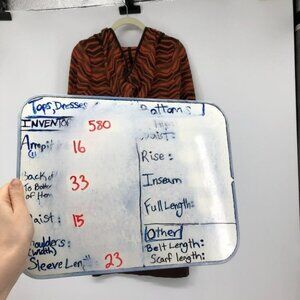 Tops, Dresses
INVENTORY 580
Armpit 16
(1)
Back of 33
To Bottom
of Hem
Waist: 15
Shoulders:
(width)
Sleeve Len 23
Bottoms
Waist:
Rise:
Inseam
Full Length:
Other
Belt Length:
Scarf length: